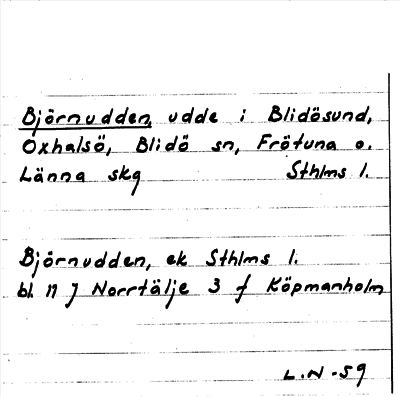 Björnudden, udde i Blidösund,
Oxhalsö, Blidö sn, Frötuna o.
Länna skg Sthlms l.
Björnudden, ek Sthlms l.
bl. 11 J Norrtälje 3 f Köpmanholm
L.N -59